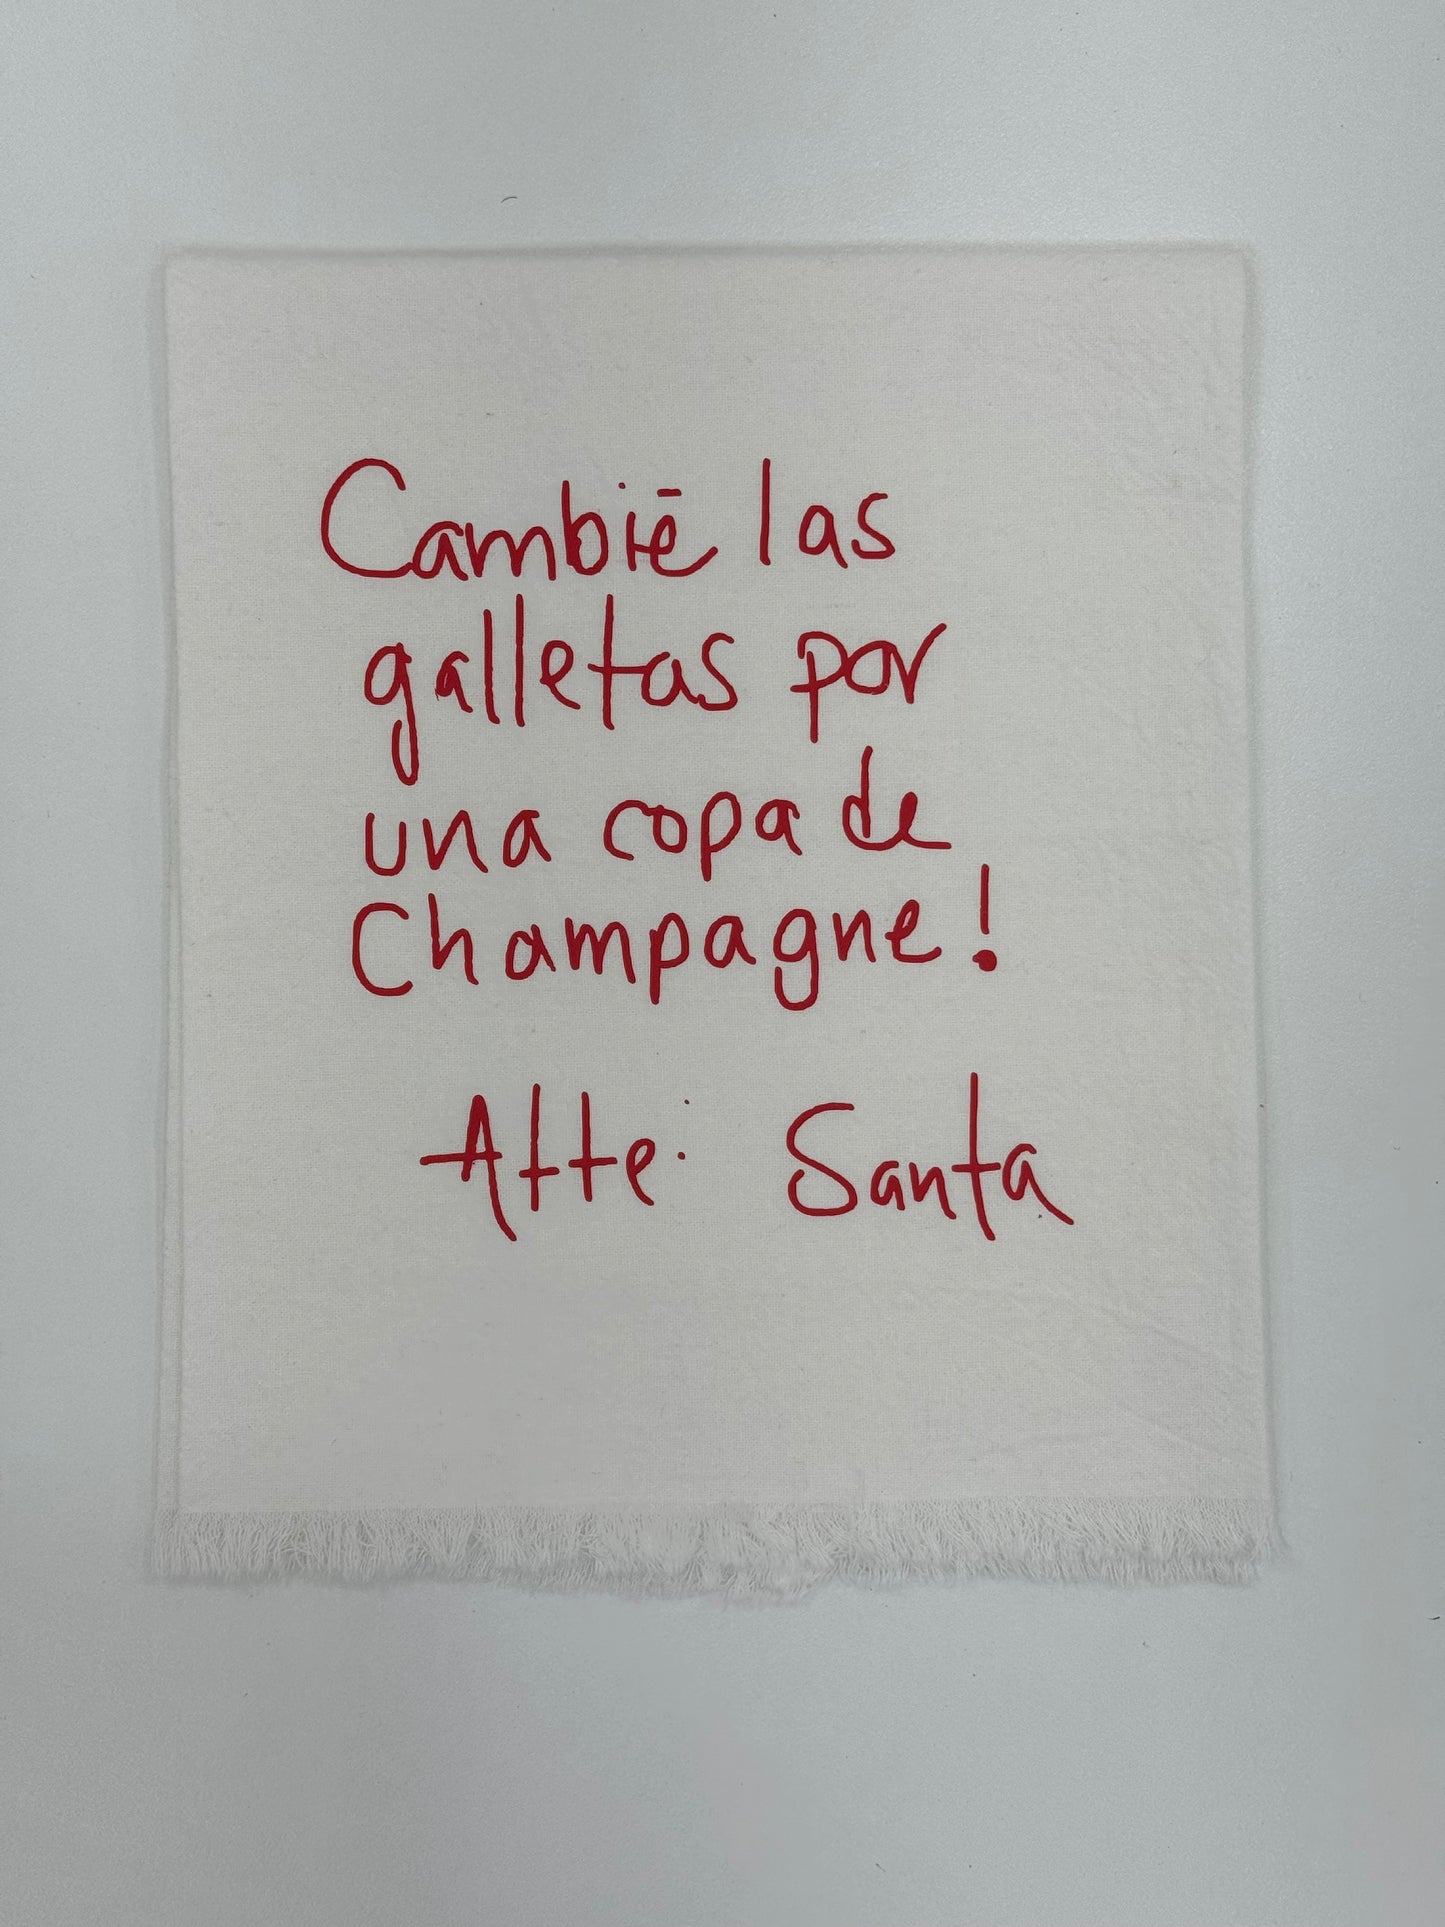 Cambié las
galletas por
una copa de
Champagne!
Atte: Santa